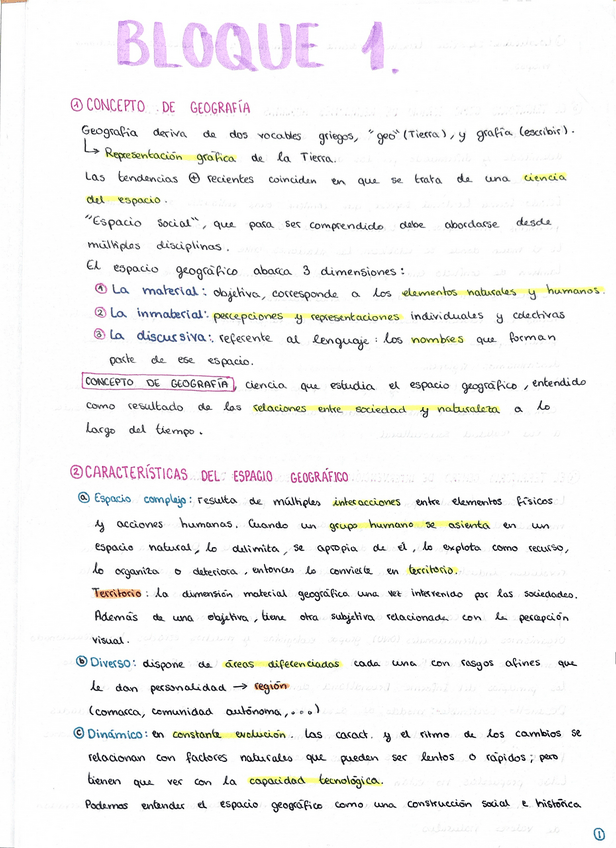 BLOQUE 1.
① CONCEPTO DE GEOGRAFÍA
Geografía deriva de dos vocables griegos, "geo" (Tierra), y grafía (escribir).
↳ Representación gráfica de la Tierra.
Las tendencias ⊕ recientes coinciden en que se trata de una ciencia
del espacio.
"Espacio social", que para ser comprendido debe abordarse desde
múltiples disciplinas.
El espacio geográfico abarca 3 dimensiones:
① La material: objetiva, corresponde a los elementos naturales y humanos.
② La inmaterial: percepciones y representaciones individuales y colectivas
③ La discursiva: referente al lenguaje: los nombres que forman
parte de ese espacio.
CONCEPTO DE GEOGRAFÍA, ciencia que estudia el espacio geográfico, entendido
como resultado de las relaciones entre sociedad y naturaleza a lo
largo del tiempo.
② CARACTERÍSTICAS DEL ESPACIO GEOGRÁFICO
ⓐ Espacio complejo: resulta de múltiples interacciones entre elementos físicos
y acciones humanas. Cuando un grupo humano se asienta en un
espacio natural, lo delimita, se apropia de él, lo explota como recurso,
lo organiza o deteriora, entonces lo convierte en territorio.
Territorio: la dimensión material geográfica una vez intervenido por las sociedades.
Además de una objetiva, tiene otra subjetiva relacionada con la percepción
visual.
ⓑ Diverso: dispone de áreas diferenciadas cada una con rasgos afines que
le dan personalidad → región
(comarca, comunidad autónoma,...)
ⓒ Dinámico: en constante evolución. Las caract. y el ritmo de los cambios se
relacionan con factores naturales que pueden ser lentos o rápidos; pero
tienen que ver con la capacidad tecnológica.
Podemos entender el espacio geográfico como una construcción social e histórica
①